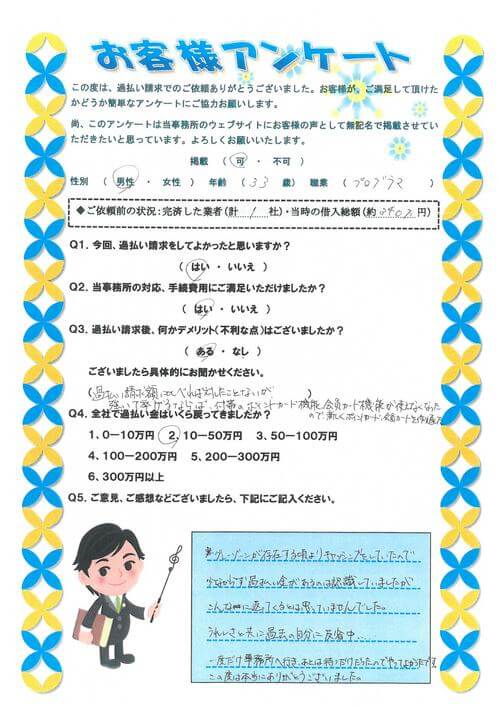 お客様アンケート
この度は、過払い請求でのご依頼ありがとうございました。お客様が、ご満足して頂けた
かどうか簡単なアンケートにご協力お願いします。
尚、このアンケートは当事務所のウェブサイトにお客様の声として無記名で掲載させてい
ただきたいと思っています。よろしくお願いいたします。
掲載 ( 可 ・ 不可 )
性別 ( 男性 ・ 女性 ) 年齢 ( 33 歳) 職業 ( プログラマ )
◆ご依頼前の状況:完済した業者(計 1 社)・当時の借入総額(約 円)
Q1. 今回、過払い請求をしてよかったと思いますか?
( はい ・ いいえ )
Q2. 当事務所の対応、手続費用にご満足いただけましたか?
( はい ・ いいえ )
Q3. 過払い請求後、何かデメリット(不利な点)はございましたか?
( ある ・ なし )
ございましたら具体的にお聞かせください。
(過払い請求額に比べれば大したことないが )
強いて挙げるならば、付帯のポイントカード機能、会員カード機能が使えなくなった
ので新しくポイントカード、会員カードを作成した
Q4. 全社で過払い金はいくら戻ってきましたか?
1. 0-10万円 2. 10-50万円 3. 50-100万円
4. 100-200万円 5. 200-300万円
6. 300万円以上
Q5. ご意見、ご感想などございましたら、下記にご記入ください。
グレーゾーンが存在する頃よりキャッシングをしていたので
少なからず過払い金があるのは認識していましたが
こんなに返ってくるとは思っていませんでした。
うれしさと共に過去の自分に反省中…
一度だけ事務所へ行き、あとは待つだけだったのでやってよかったです
この度は本当にありがとうございました。